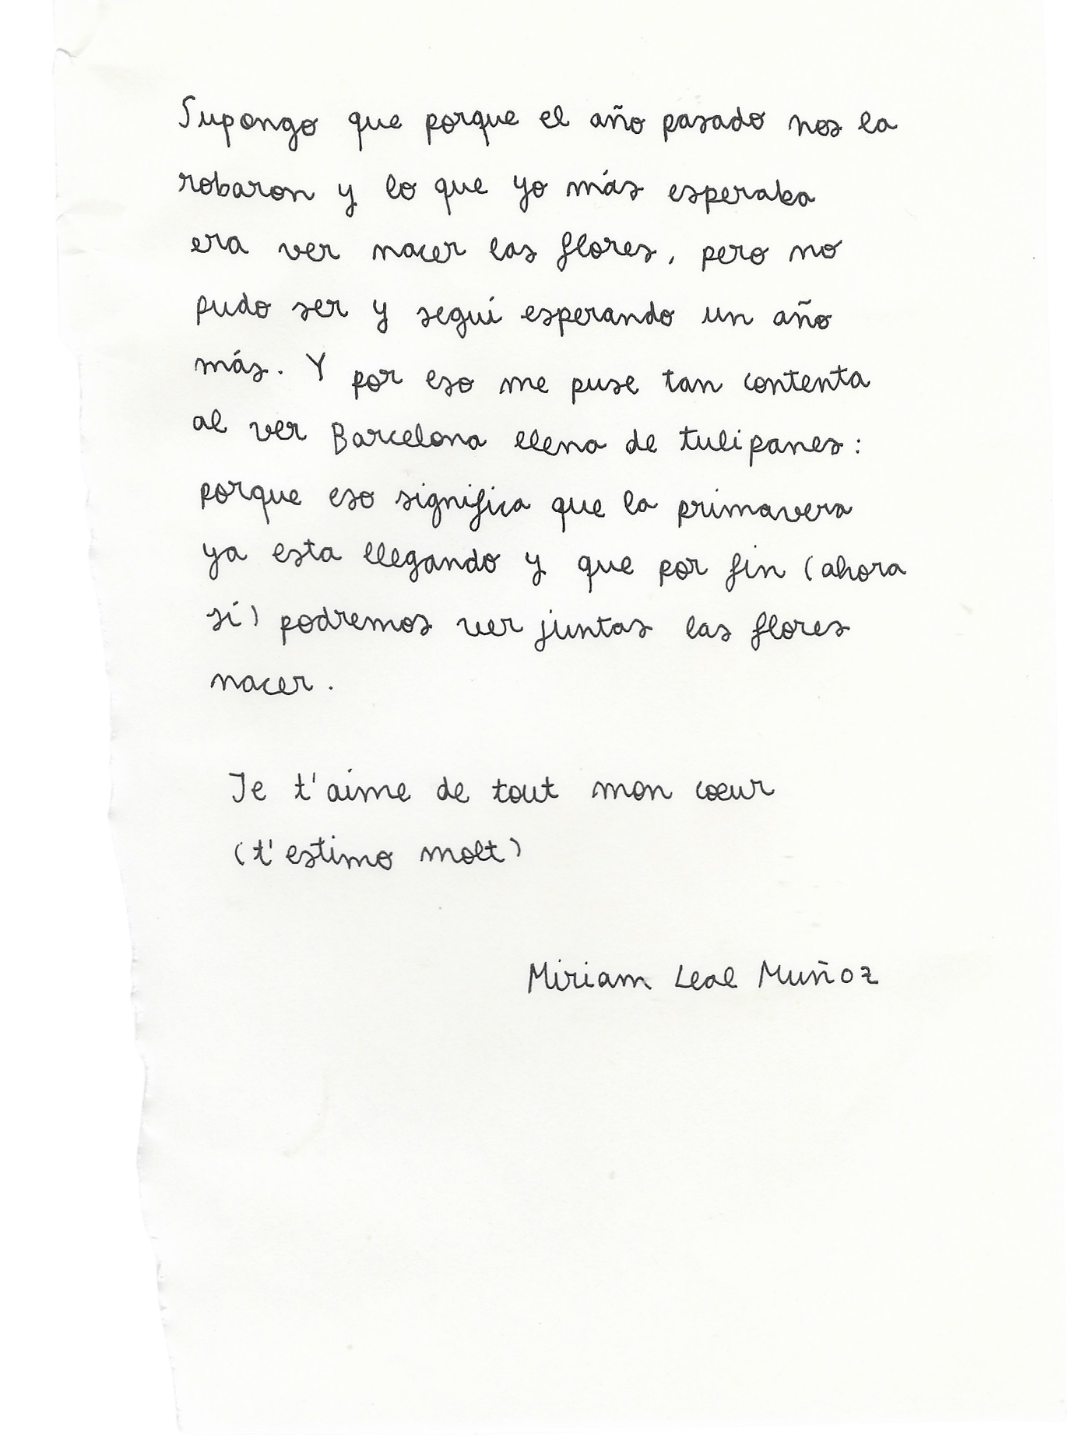 Supongo que porque el año pasado nos la
robaron y lo que yo más esperaba
era ver nacer las flores, pero no
pudo ser y seguí esperando un año
más. Y por eso me puse tan contenta
al ver Barcelona llena de tulipanes:
porque eso significa que la primavera
ya esta llegando y que por fin (ahora
sí) podremos ver juntas las flores
nacer.
Je t'aime de tout mon cœur
(t'estimo molt)
Miriam Leal Muñoz